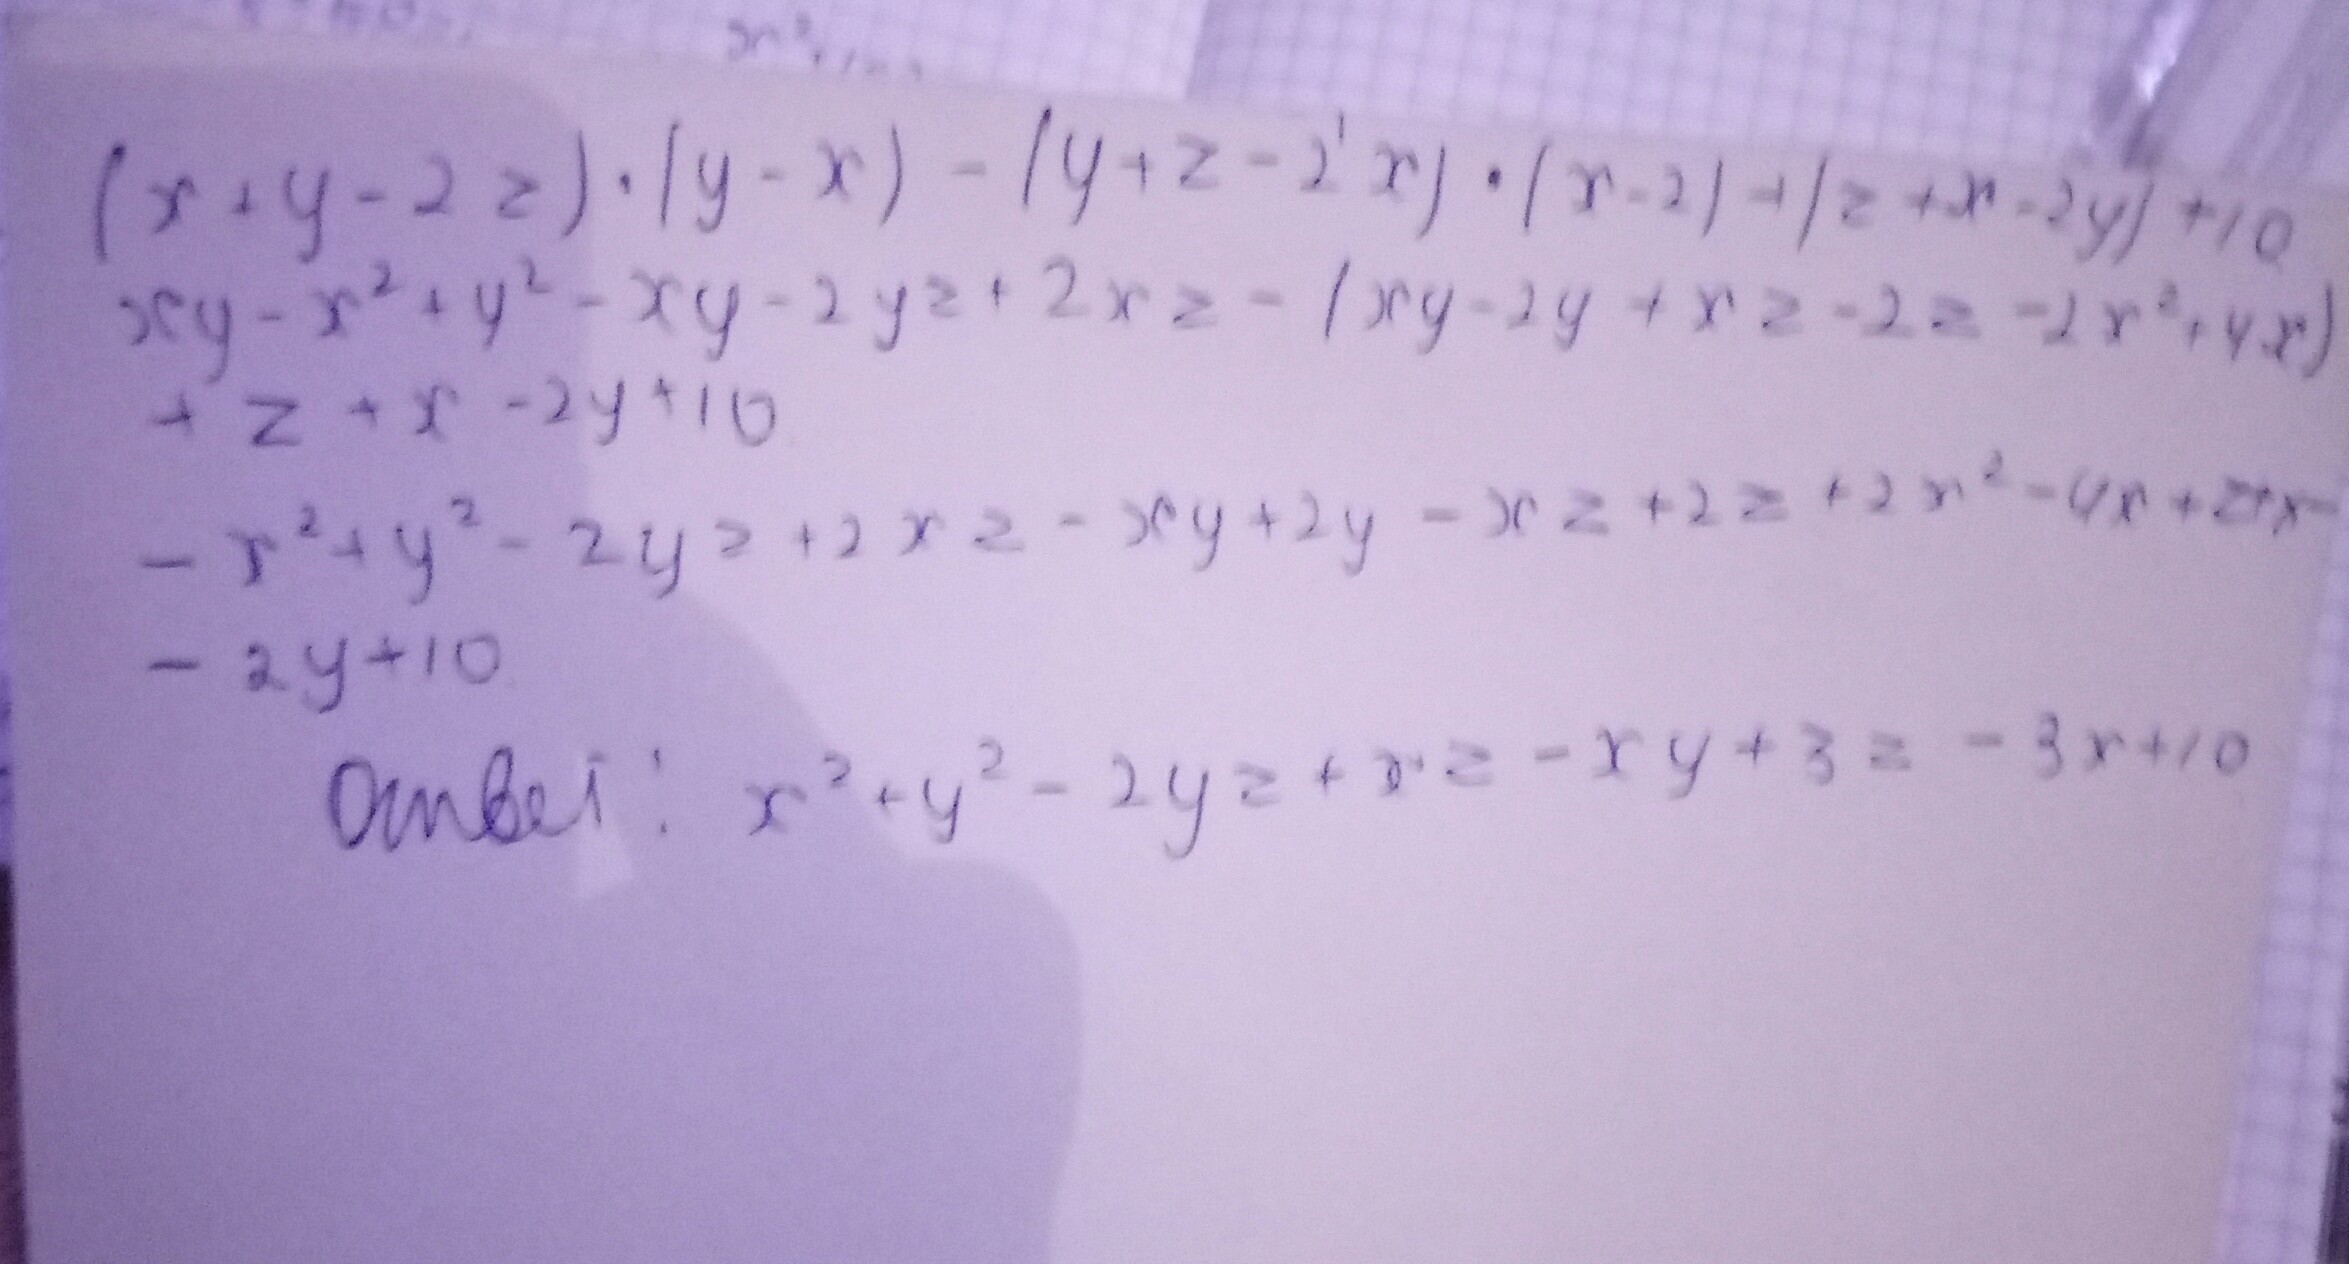 (x+y-2z)·(y-x)-(y+z-2x)·(x-2)+(z+x-2y)+10
xy-x²+y²-xy-2yz+2xz-(xy-2y+xz-2z-2x²+4x)
+z+x-2y+10
-x²+y²-2yz+2xz-xy+2y-xz+2z+2x²-4x+z+x-
-2y+10
Ответ: x²+y²-2yz+xz-xy+3z-3x+10